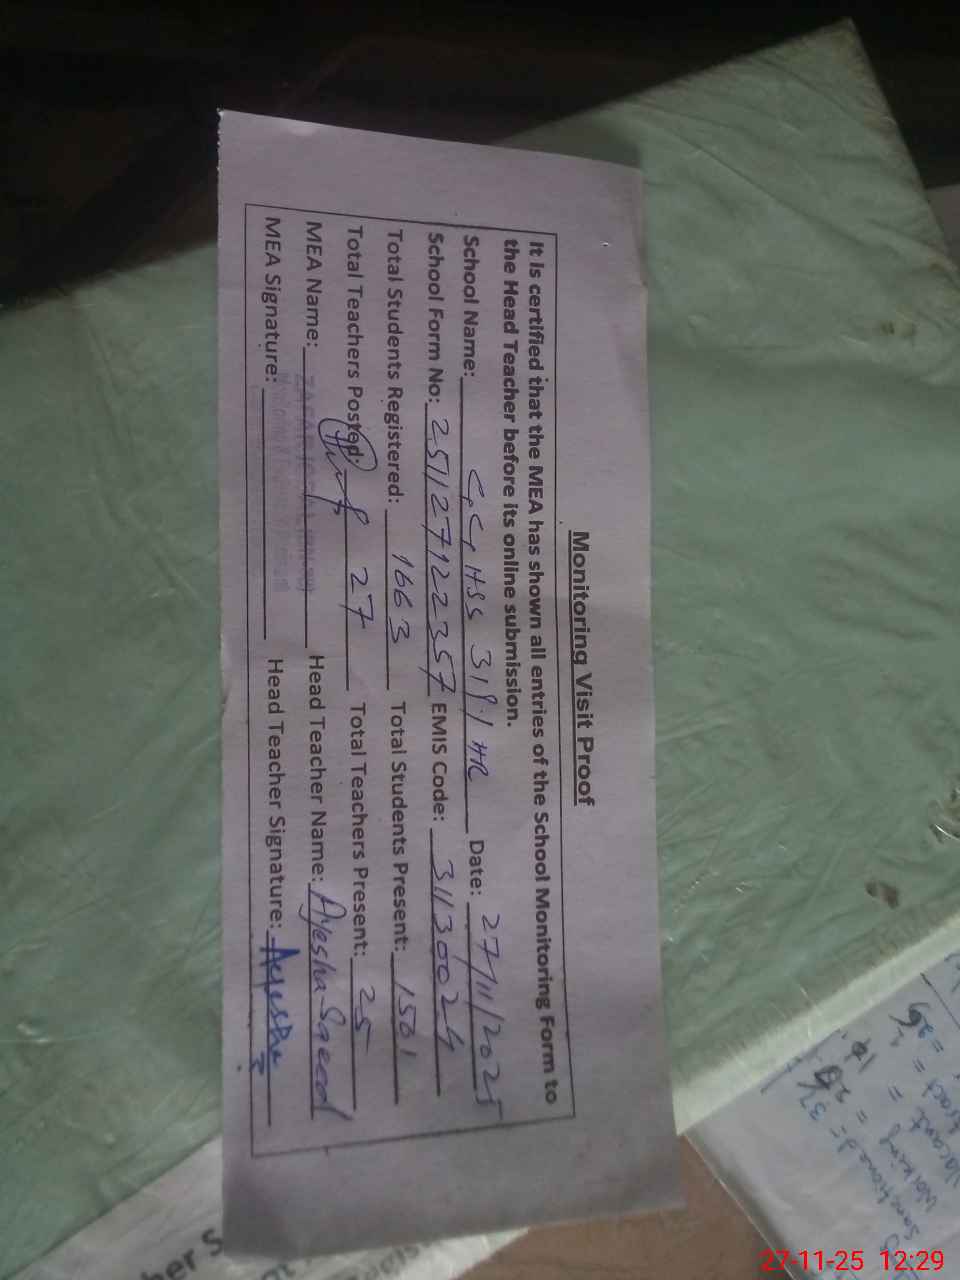 Monitoring Visit Proof
It is certified that the MEA has shown all entries of the School Monitoring Form to
the Head Teacher before its online submission.
School Name: GGHSS 318.1 HR Date: 27/11/2025
School Form No: 251127122357 EMIS Code: 31130024
Total Students Registered: 1663 Total Students Present: 1501
Total Teachers Posted: 27 Total Teachers Present: 25
MEA Name: Head Teacher Name: Ayesha Saeed
MEA Signature: Head Teacher Signature: Ayesha
Sanctioned =
Working =
Vacant =
27-11-25 12:29